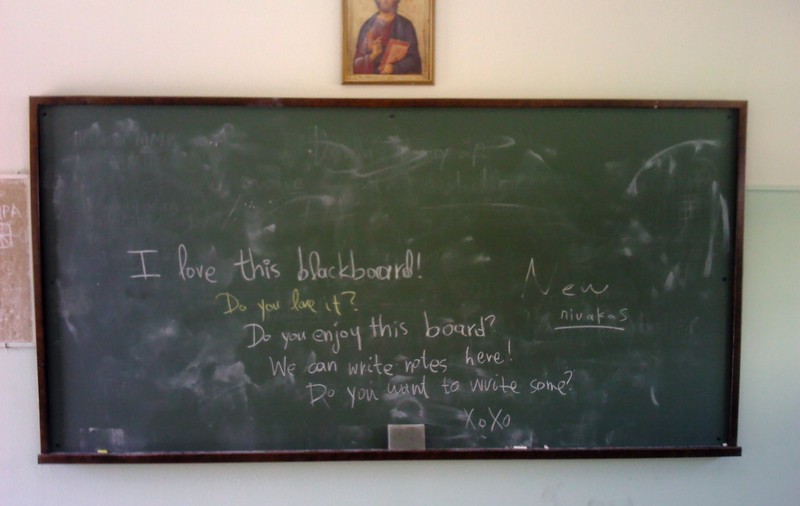 I love this blackboard!
Do you love it?
Do you enjoy this board?
We can write notes here!
Do you want to write some?
XoXo
New
nivakas
ΙΡΑ